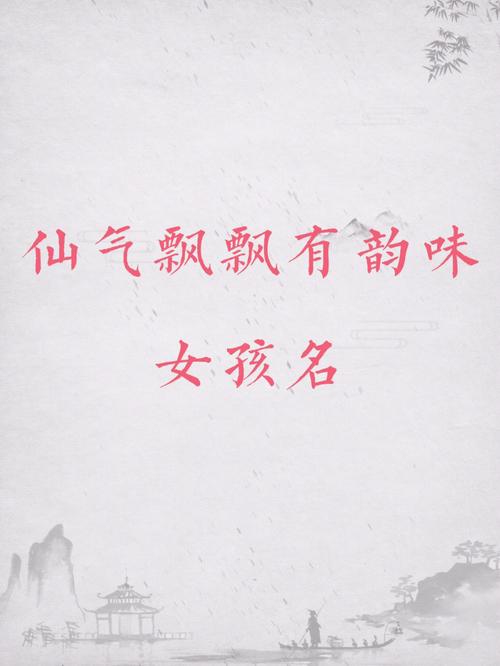 仙气飘飘有韵味
女孩名